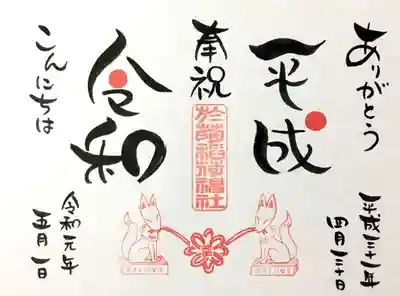 ありがとう
平成三十一年
四月三十日
平成
奉祝
於菊稲荷神社
令和
こんにちは
令和元年
五月一日